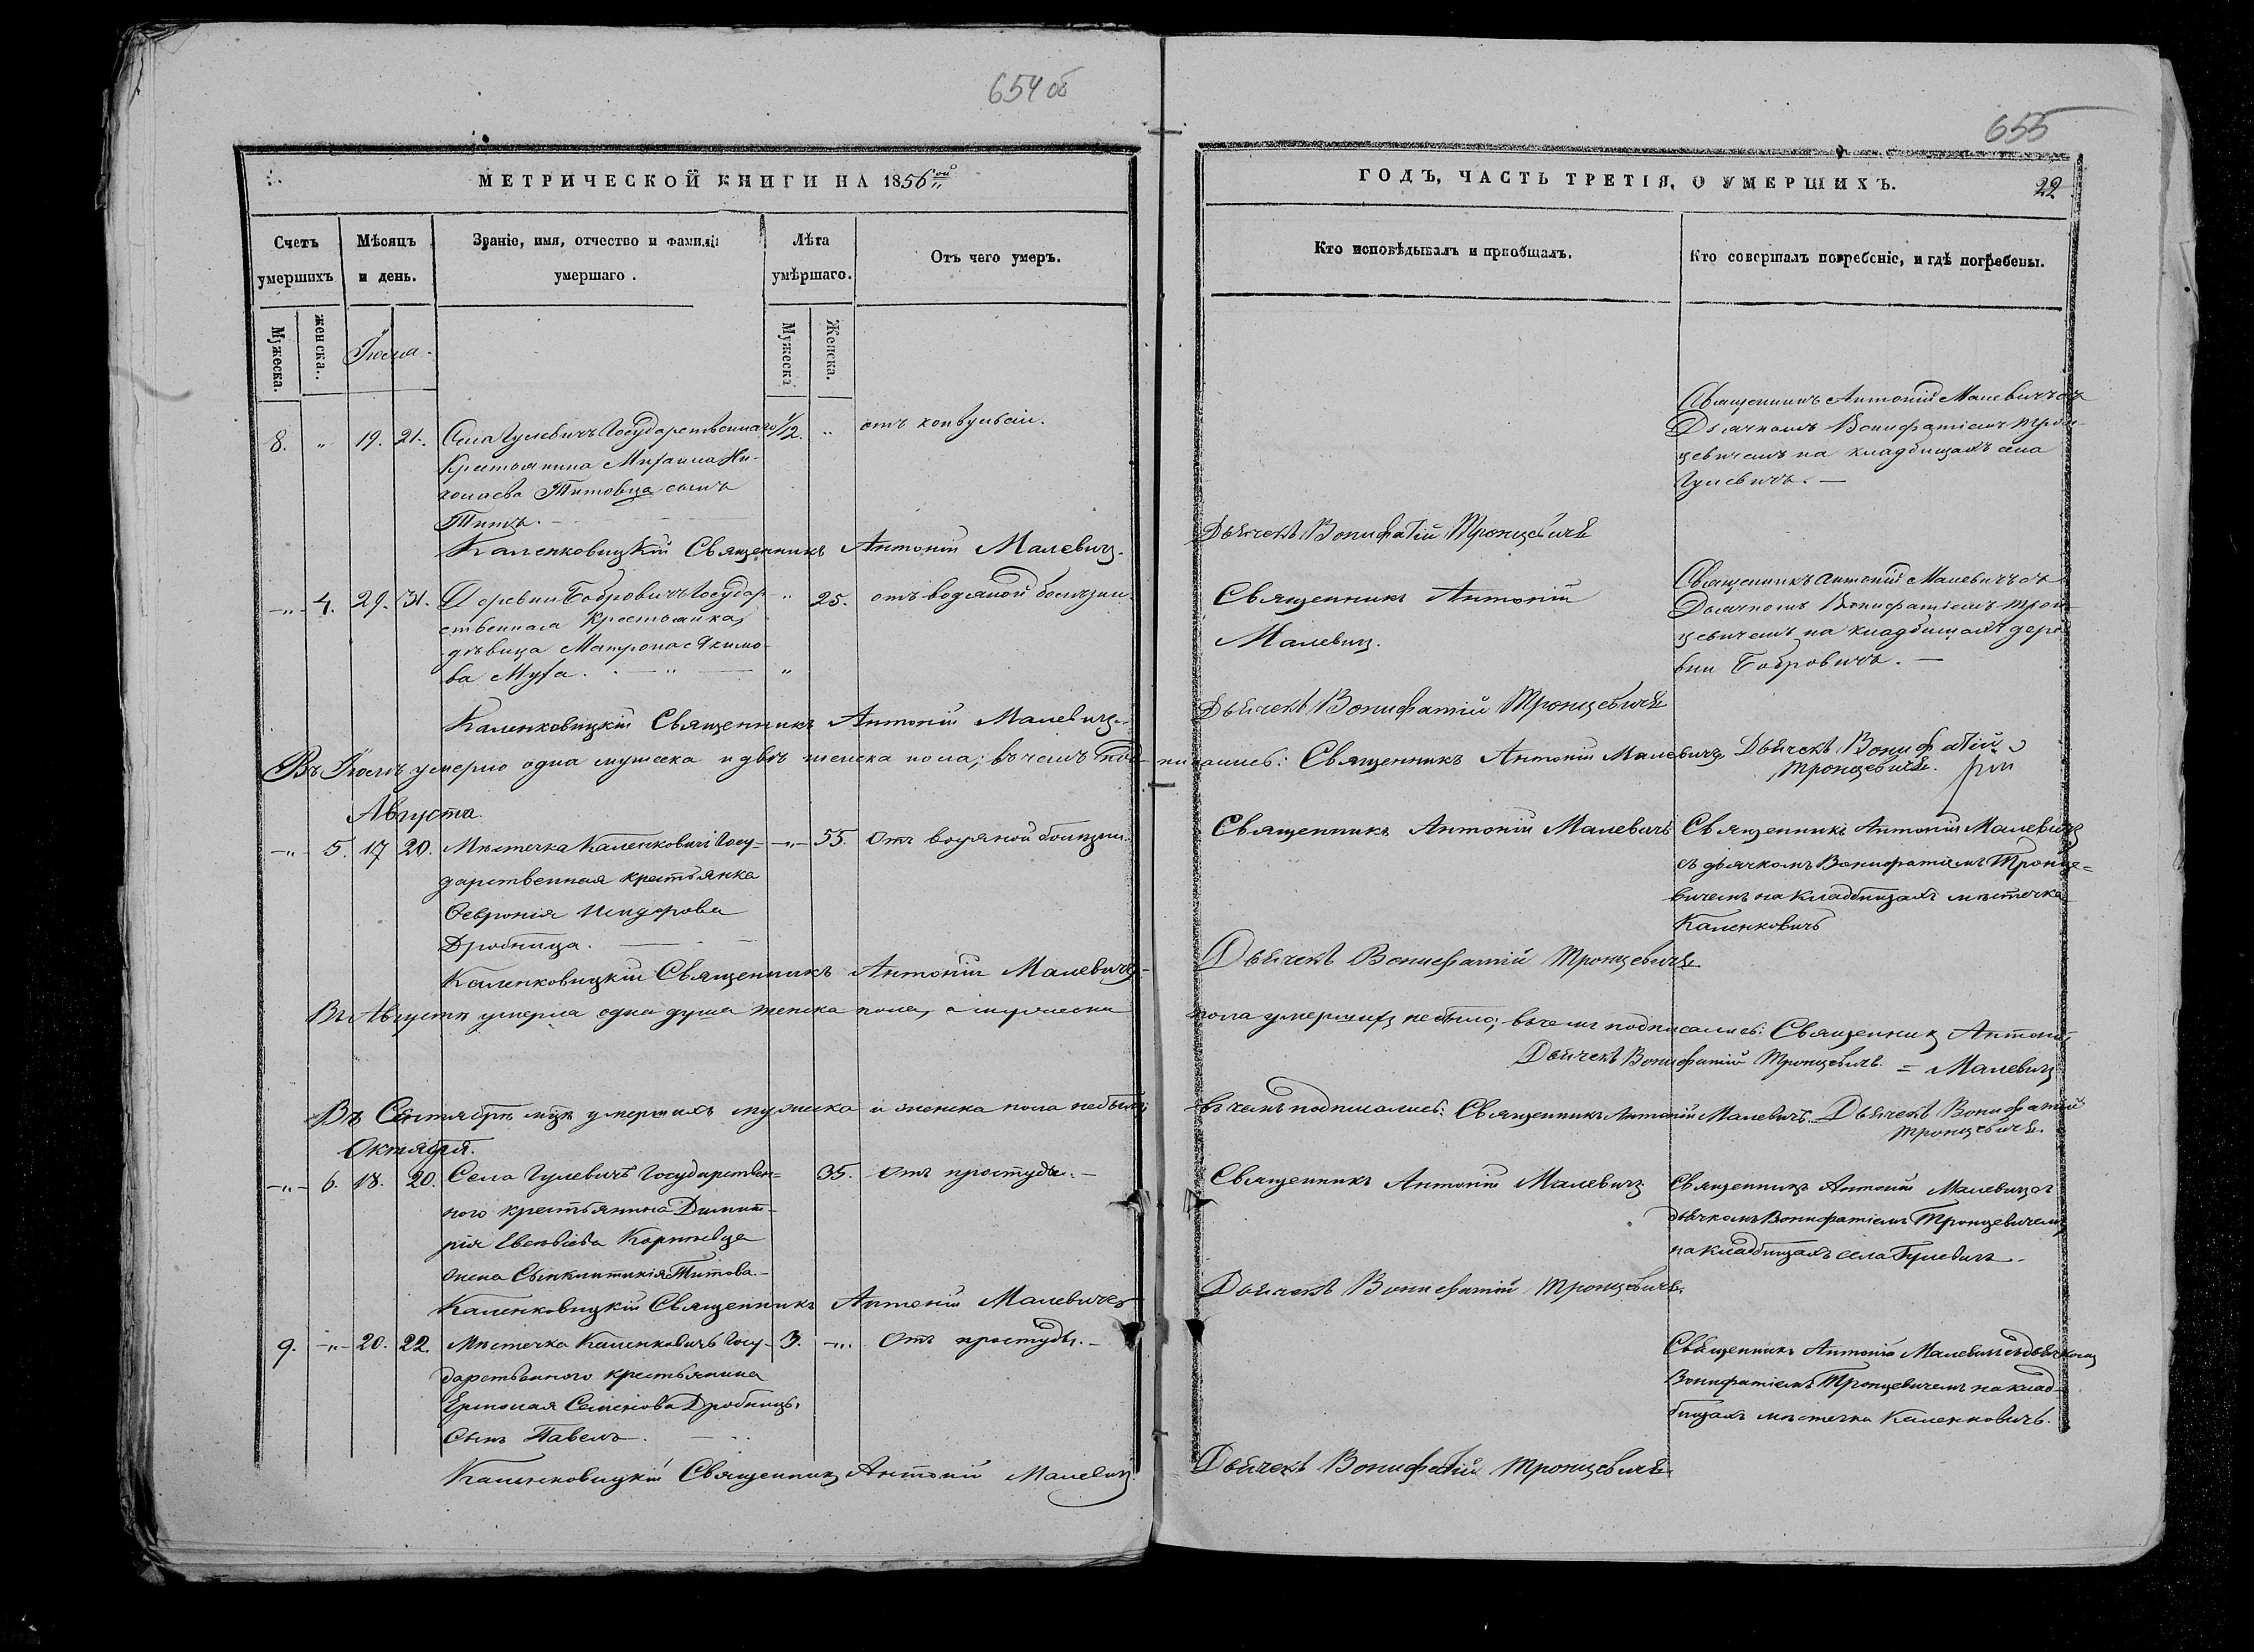 654 об
655
МЕТРИЧЕСКОЙ КНИГИ НА 1856ой
ГОДЪ, ЧАСТЬ ТРЕТІЯ, О УМЕРШИХЪ.
22
Счетъ умершихъ
Мѣсяцъ и день.
Званіе, имя, отчество и фамилія умершаго.
Лѣта умѣршаго.
Отъ чего умеръ.
Кто исповѣдывалъ и пріобщалъ.
Кто совершалъ погребеніе, и гдѣ погребены.
Мужеска.
женска.
Іюля.
Мужеска
Женска.
8. " 19. 21. Села Гулевичъ Государственнаго 1/2. " отъ конвульсіи.
Крестьянина Михаила Ни-
колаева Титовца сынъ
Титъ.
Священникъ Антоній Малевичъ съ
Дьячкомъ Вонифатіемъ Трон-
цевичемъ на кладбищахъ села
Гулевичъ.
Каленковицкій Священникъ Антоній Малевичъ.
Дьячекъ Вонифатій Тронцевичъ
-"- 4. 29. 31. Деревни Бобровичъ Государ- " 25. отъ водяной болезни
ственная Крестьянка,
дѣвица Матрона Якимо-
ва Муха. " "
Священникъ Антоній
Малевичъ.
Священникъ Антоній Малевичъ съ
Дьячкомъ Вонифатіемъ Трон-
цевичемъ на кладбищахъ дере-
вни Бобровичъ.
Каленковицкій Священникъ Антоній Малевичъ
Дьячекъ Вонифатій Тронцевичъ
Въ Іюлѣ умерло одна мужеска и двѣ женска пола; въ чемъ под-
писались: Священникъ Антоній Малевичъ Дьячекъ Вонифатій
Тронцевичъ.
Августа.
-"- 5. 17 20. Мѣстечка Каленковичъ Госу= -"- 55. Отъ водяной болѣзни.
дарственная крестьянка
Февронія Исидорова
Дробница.
Священникъ Антоній Малевичъ
Священникъ Антоній Малевичъ
съ дьячкомъ Вонифатіемъ Тронце=
вичемъ на кладбищахъ мѣстечка
Каленковичъ
Каленковицкій Священникъ Антоній Малевичъ
Дьячекъ Вонифатій Тронцевичъ
Въ Августѣ умерла одна душа женска пола, а мужеска
пола умершихъ небыло; въ чемъ подписались: Священникъ Антоній
Дьячекъ Вонифатій Тронцевичъ. = Малевичъ
Въ Сентябрѣ м-цѣ умершихъ мужеска и женска пола небыло;
въ чемъ подписались: Священникъ Антоній Малевичъ. Дьячекъ Вонифатій
Тронцевичъ.
Октября.
-"- 6. 18. 20. Села Гулевичъ Государствен= 35. Отъ простуды.
ного крестьянина Димит-
рія Евсѣвіева Корнѣвца
жена Сынклитикія Титова
Священникъ Антоній Малевичъ
Священникъ Антоній Малевичъ съ
дьячкомъ Вонифатіемъ Тронцевичемъ
на кладбищахъ села Гулевичъ.
Каленковицкій Священникъ Антоній Малевичъ
Дьячекъ Вонифатій Тронцевичъ.
9. -"- 20. 22. Мѣстечка Каленковичъ Госу- 3. -"- Отъ простуды.
дарственного крестьянина
Ермолая Семенова Дробницы
Сынъ Павелъ.
Священникъ Антоній Малевичъ съ дьячкомъ
Вонифатіемъ Тронцевичемъ на клад-
бищахъ мѣстечка Каленковичъ.
Каленковицкій Священникъ Антоній Малевичъ
Дьячекъ Вонифатій Тронцевичъ.